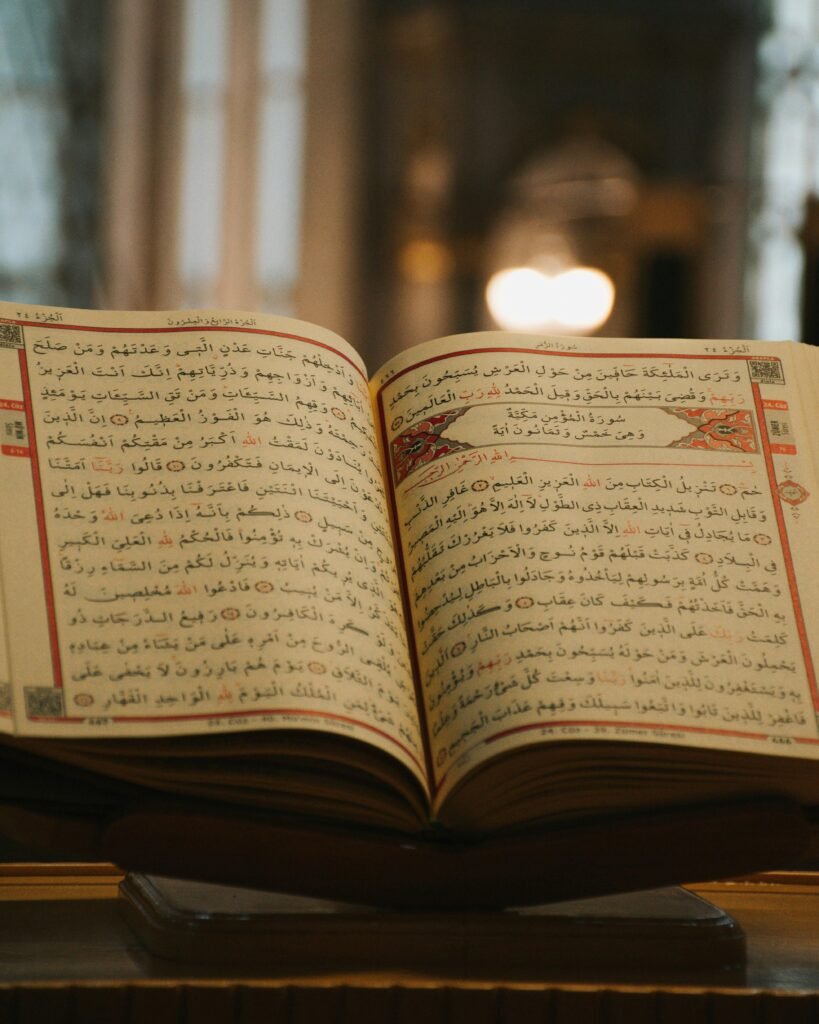 اَلْجُزْءُ ٢٤
سُورَةُ الزُّمَرِ
وَتَرَى الْمَلٰٓئِكَةَ حَٓافّ۪ينَ مِنْ حَوْلِ الْعَرْشِ يُسَبِّحُونَ بِحَمْدِ
رَبِّهِمْ وَقُضِيَ بَيْنَهُمْ بِالْحَقِّ وَق۪يلَ الْحَمْدُ لِلّٰهِ رَبِّ الْعَالَم۪ينَ
سُورَةُ الْمُؤْمِنِ مَكِّيَّةٌ
وَهِيَ خَمْسٌ وَثَمَانُونَ اٰيَةً
بِسْمِ اللّٰهِ الرَّحْمٰنِ الرَّح۪يمِ
حٰمٓ تَنْز۪يلُ الْكِتَابِ مِنَ اللّٰهِ الْعَز۪يزِ الْعَل۪يمِ غَافِرِ الذَّنْبِ
وَقَابِلِ التَّوْبِ شَد۪يدِ الْعِقَابِ ذِي الطَّوْلِ لَٓا اِلٰهَ اِلَّا هُوَ اِلَيْهِ الْمَص۪يرُ
مَا يُجَادِلُ ف۪ٓي اٰيَاتِ اللّٰهِ اِلَّا الَّذ۪ينَ كَفَرُوا فَلَا يَغْرُرْكَ تَقَلُّبُهُمْ
فِي الْبِلَادِ كَذَّبَتْ قَبْلَهُمْ قَوْمُ نُوحٍ وَالْاَحْزَابُ مِنْ بَعْدِهِمْ
وَهَمَّتْ كُلُّ اُمَّةٍ بِرَسُولِهِمْ لِيَأْخُذُوهُ وَجَادَلُوا بِالْبَاطِلِ لِيُدْحِضُوا
بِهِ الْحَقَّ فَاَخَذْتُهُمْ فَكَيْفَ كَانَ عِقَابِ وَكَذٰلِكَ حَقَّتْ
كَلِمَتُ رَبِّكَ عَلَى الَّذ۪ينَ كَفَرُٓوا اَنَّهُمْ اَصْحَابُ النَّارِ اَلَّذ۪ينَ
يَحْمِلُونَ الْعَرْشَ وَمَنْ حَوْلَهُ يُسَبِّحُونَ بِحَمْدِ رَبِّهِمْ وَيُؤْمِنُونَ
بِه۪ وَيَسْتَغْفِرُونَ لِلَّذ۪ينَ اٰمَنُوا رَبَّنَا وَسِعْتَ كُلَّ شَيْءٍ رَحْمَةً وَعِلْمًا
فَاغْفِرْ لِلَّذ۪ينَ تَابُوا وَاتَّبَعُوا سَب۪يلَكَ وَقِهِمْ عَذَابَ الْجَح۪يمِ
24. Cüz - 39. Zümer Sûresi
466
24. Cüz
ZÜMER
اَلْجُزْءُ الرَّابِعُ وَالْعِشْرُونَ
اَلْجُزْءُ ٢٤
وَاَدْخِلْهُمْ جَنَّاتِ عَدْنٍ الَّت۪ي وَعَدْتَهُمْ وَمَنْ صَلَحَ
اٰبَٓائِهِمْ وَاَزْوَاجِهِمْ وَذُرِّيَّاتِهِمْ اِنَّكَ اَنْتَ الْعَز۪يزُ
وَقِهِمُ السَّيِّـَٔاتِ وَمَنْ تَقِ السَّيِّـَٔاتِ يَوْمَئِذٍ
رَحِمْتَهُ وَذٰلِكَ هُوَ الْفَوْزُ الْعَظ۪يمُ اِنَّ الَّذ۪ينَ
يُنَادَوْنَ لَمَقْتُ اللّٰهِ اَكْبَرُ مِنْ مَقْتِكُمْ اَنْفُسَكُمْ
تُدْعَوْنَ اِلَى الْا۪يمَانِ فَتَكْفُرُونَ قَالُوا رَبَّنَٓا اَمَتَّنَا
وَاَحْيَيْتَنَا اثْنَتَيْنِ فَاعْتَرَفْنَا بِذُنُوبِنَا فَهَلْ اِلٰى
مِنْ سَب۪يلٍ ذٰلِكُمْ بِاَنَّهُٓ اِذَا دُعِيَ اللّٰهُ وَحْدَهُ
وَاِنْ يُشْرَكْ بِه۪ تُؤْمِنُوا فَالْحُكْمُ لِلّٰهِ الْعَلِيِّ الْكَب۪يرِ
الَّذ۪ي يُر۪يكُمْ اٰيَاتِه۪ وَيُنَزِّلُ لَكُمْ مِنَ السَّمَٓاءِ رِزْقًا
اِلَّا مَنْ يُن۪يبُ فَادْعُوا اللّٰهَ مُخْلِص۪ينَ لَهُ
وَلَوْ كَرِهَ الْكَافِرُونَ رَف۪يعُ الدَّرَجَاتِ ذُو
يُلْقِي الرُّوحَ مِنْ اَمْرِه۪ عَلٰى مَنْ يَشَٓاءُ مِنْ عِبَادِه۪
يَوْمَ التَّلَاقِ يَوْمَ هُمْ بَارِزُونَ لَا يَخْفٰى عَلَى
شَيْءٌ لِمَنِ الْمُلْكُ الْيَوْمَ لِلّٰهِ الْوَاحِدِ الْقَهَّارِ
24. Cüz - 40. Mü'min Sûresi
24. Cüz